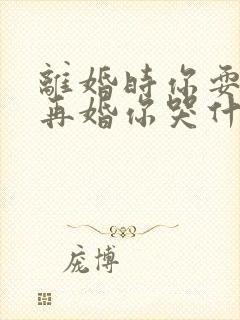 離婚時你要
再婚你哭什
庞博